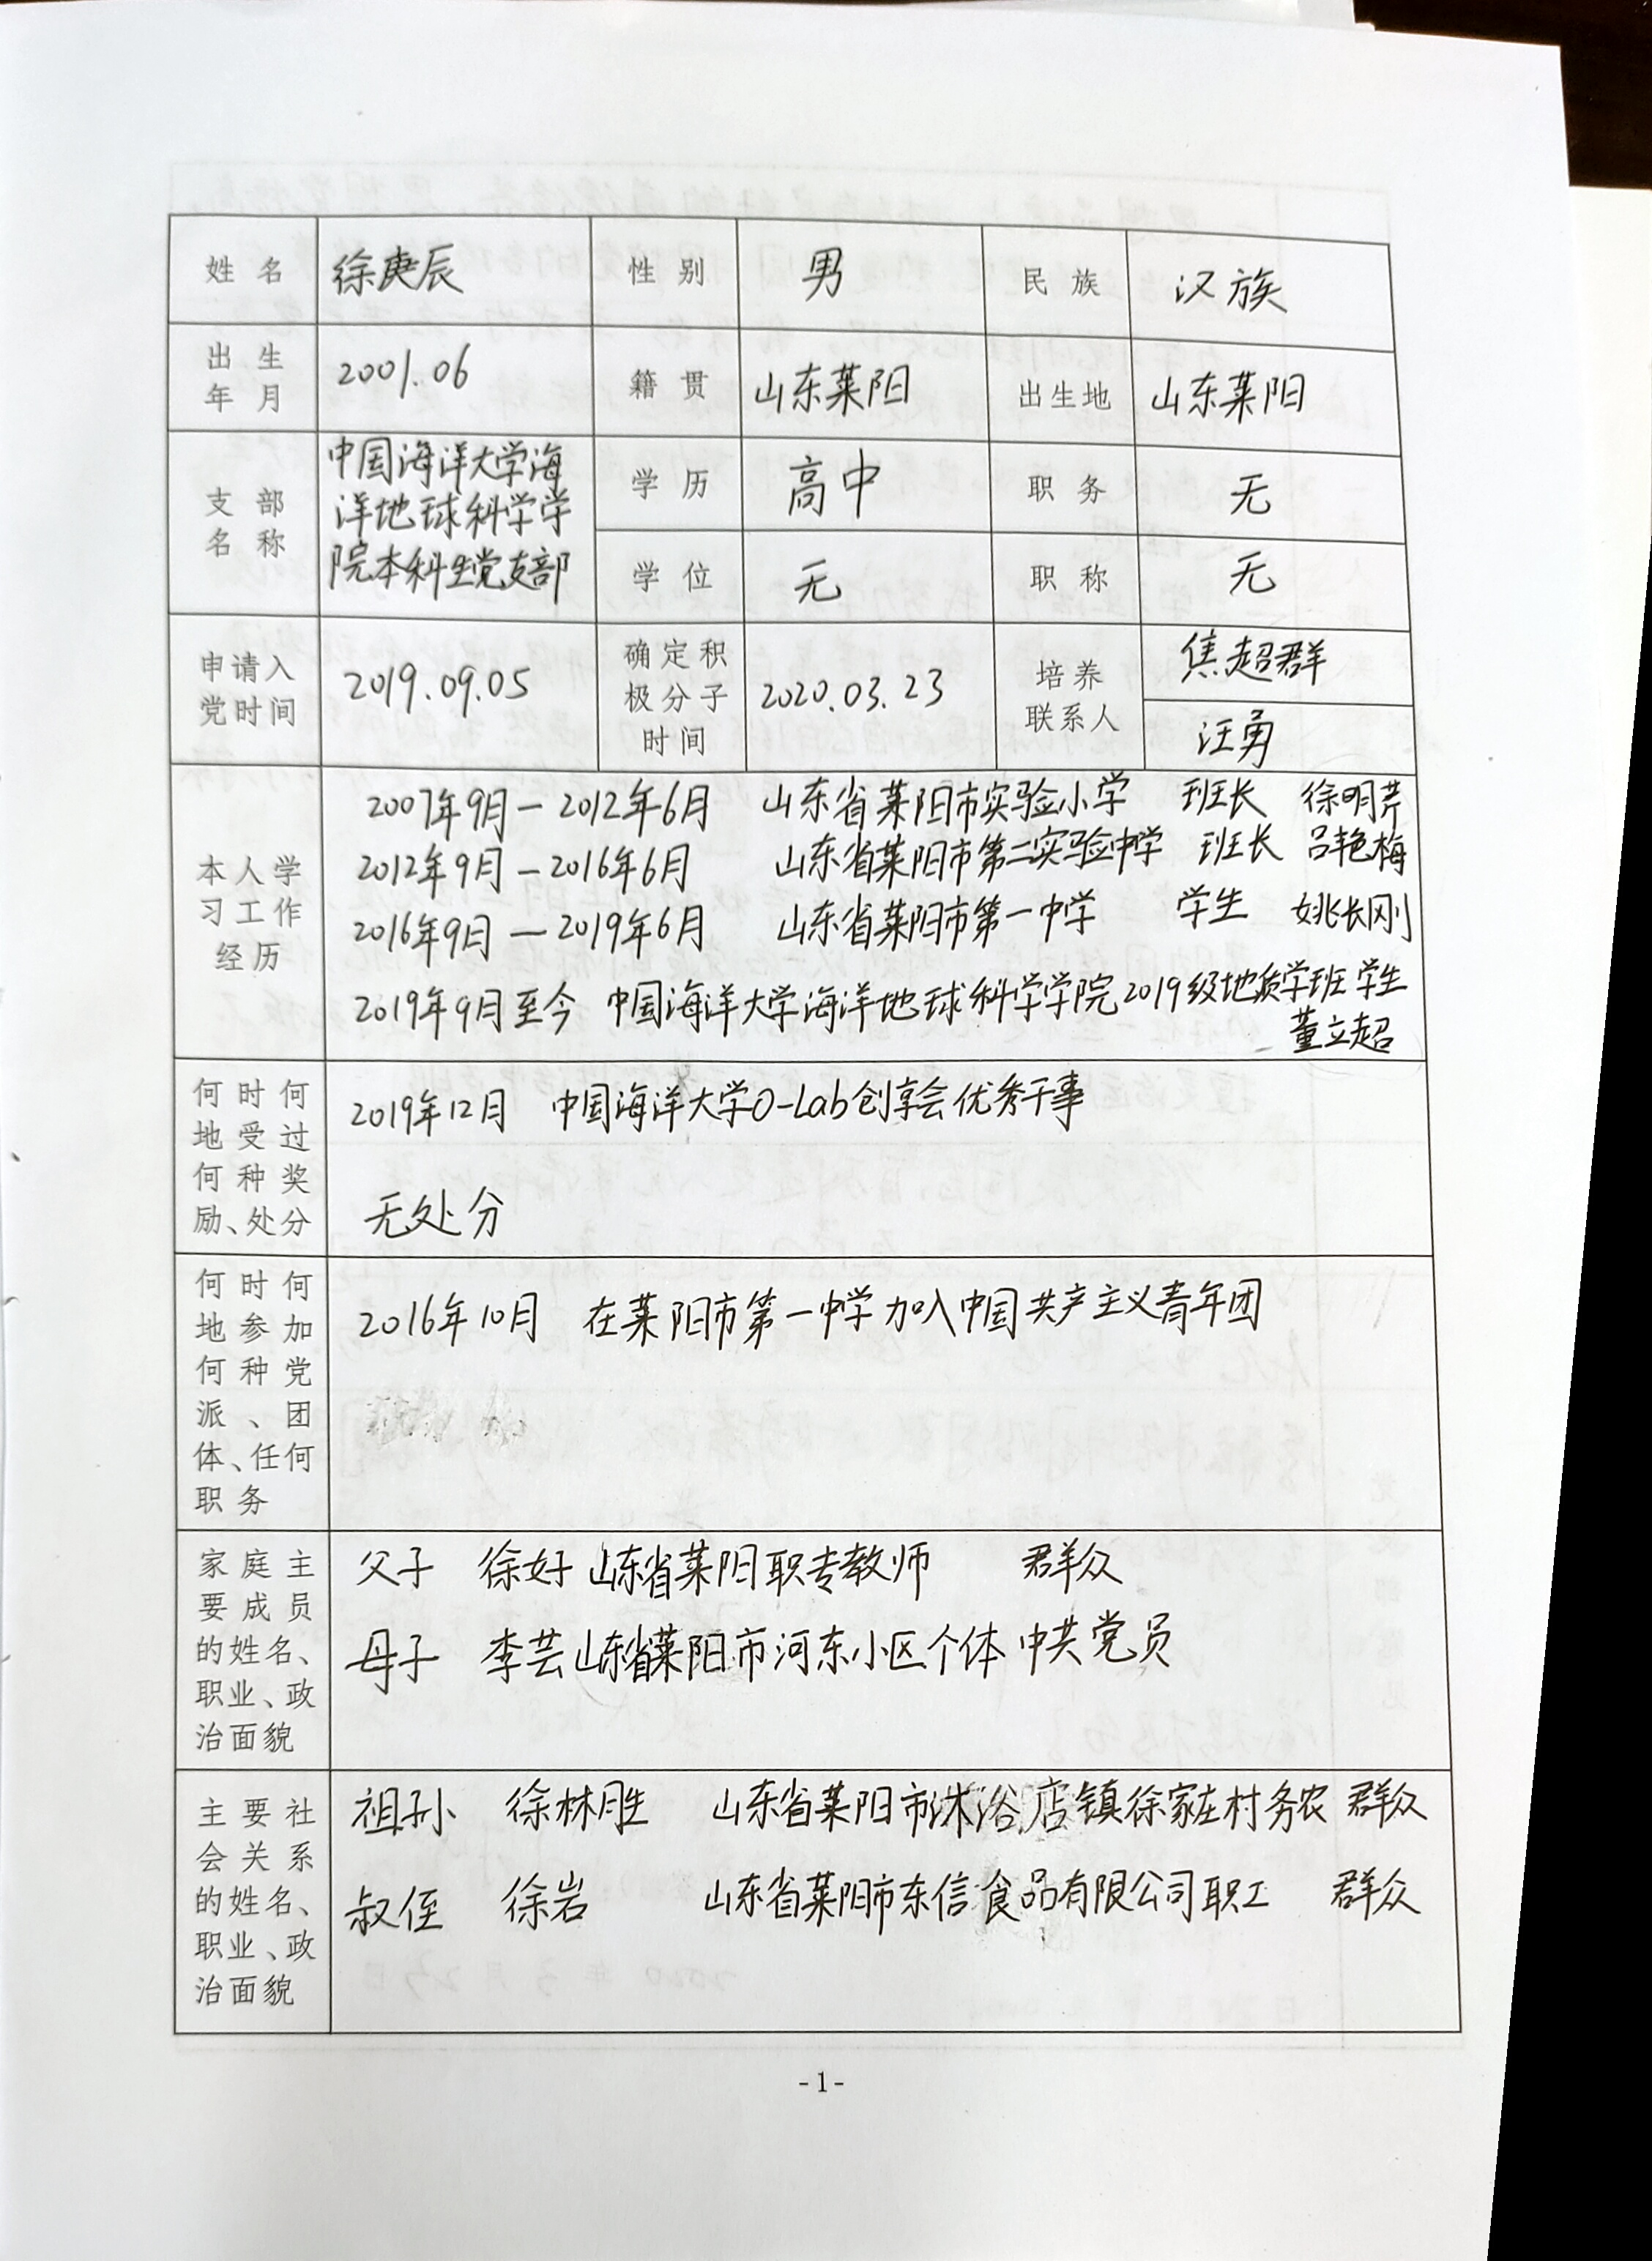 姓名 徐庚辰 性别 男 民族 汉族
出生年月 2001.06 籍贯 山东莱阳 出生地 山东莱阳
支部名称 中国海洋大学海洋地球科学学院本科生党支部 学历 高中 职务 无
学位 无 职称 无
申请入党时间 2019.09.05 确定积极分子时间 2020.03.23 培养联系人 焦超群
汪勇
本人学习工作经历
2007年9月-2012年6月 山东省莱阳市实验小学 班长 徐明芹
2012年9月-2016年6月 山东省莱阳市第二实验中学 班长 吕艳梅
2016年9月-2019年6月 山东省莱阳市第一中学 学生 姚长刚
2019年9月至今 中国海洋大学海洋地球科学学院2019级地质学班 学生
董立超
何时何地受过何种奖励、处分
2019年12月 中国海洋大学O-Lab创享会优秀干事
无处分
何时何地参加何种党派、团体、任何职务
2016年10月 在莱阳市第一中学加入中国共产主义青年团
家庭主要成员的姓名、职业、政治面貌
父子 徐好 山东省莱阳职专教师 群众
母子 李芸 山东省莱阳市河东小区个体 中共党员
主要社会关系的姓名、职业、政治面貌
祖孙 徐林胜 山东省莱阳市沐浴店镇徐家庄村务农 群众
叔侄 徐岩 山东省莱阳市东信食品有限公司职工 群众
-1-